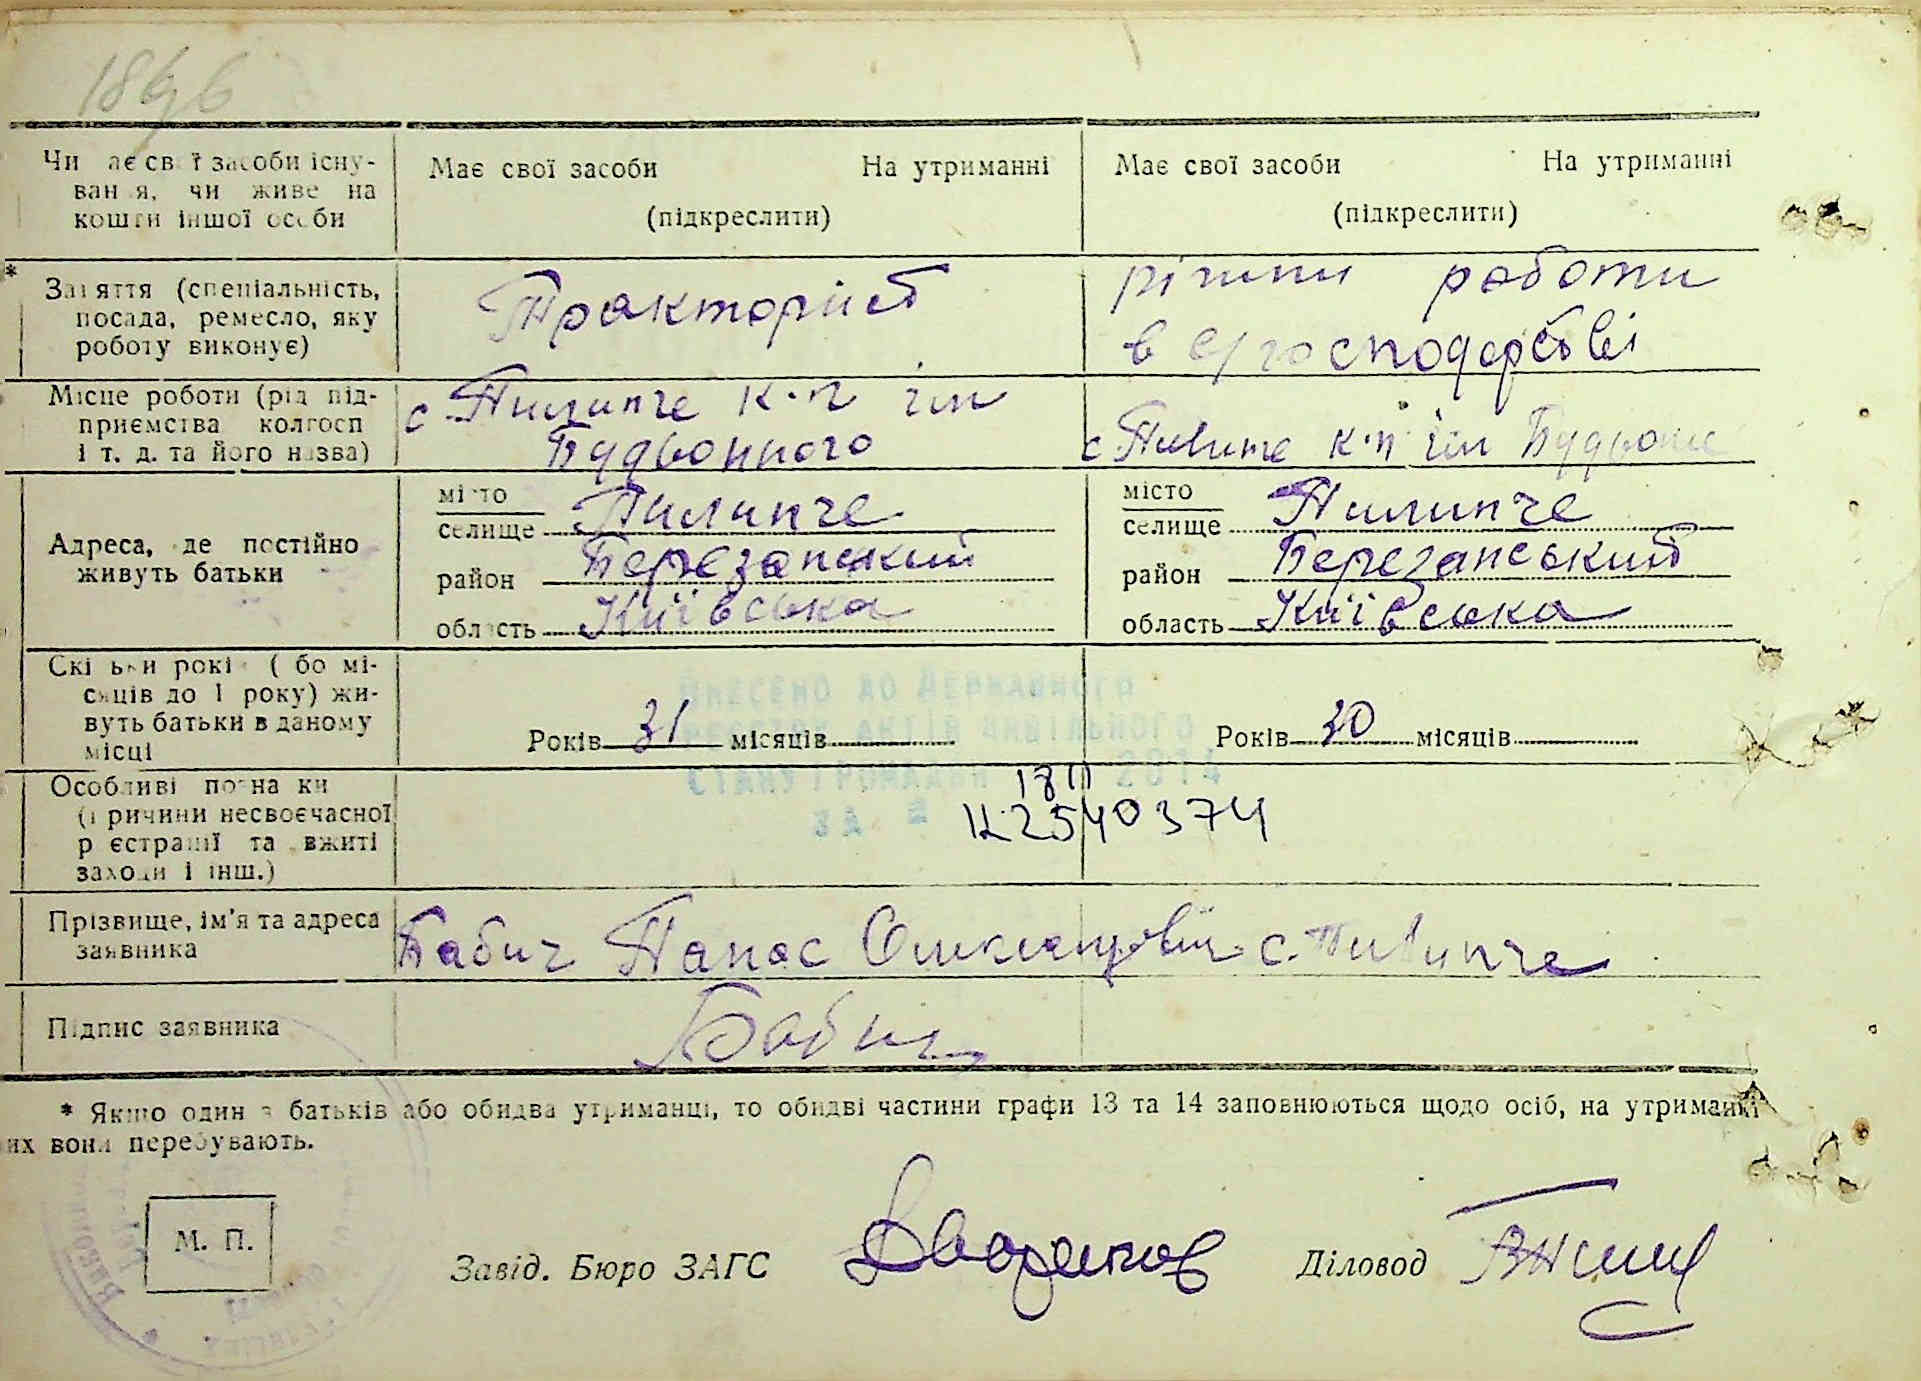 Чи має свої засоби існу-
вання, чи живе на
кошти іншої особи
Має свої засоби На утриманні
(підкреслити)
Має свої засоби На утриманні
(підкреслити)
* Заняття (спеціальність,
посада, ремесло, яку
роботу виконує)
Тракторист
різни роботи
в с/господарстві
Місце роботи (рід під-
приємства колгосп
і т. д. та його назва)
с Пилипче к-п ім
Будьонного
с Пилипче к-п ім Будьоного
Адреса, де постійно
живуть батьки
місто
селище Пилипче
район Березанський
область Київська
місто
селище Пилипче
район Березанський
область Київська
Скільки років (або мі-
сяців до 1 року) жи-
вуть батьки в даному
місці
Років 31 місяців
Років 30 місяців
ВНЕСЕНО ДО ДЕРЖАВНОГО
РЕЄСТРУ АКТІВ ЦИВІЛЬНОГО
СТАНУ ГРОМАДЯН 2014
ЗА №
Особливі познаки
(причини несвоєчасної
реєстрації та вжиті
заходи і інш.)
2540374
Прізвище, ім'я та адреса
заявника
Бабич Панас Олександрович с. Пилипче
Підпис заявника
Бабич
* Якщо один з батьків або обидва утриманці, то обидві частини графи 13 та 14 заповнюються щодо осіб, на утриманні
их вони перебувають.
М. П.
Завід. Бюро ЗАГС
Діловод